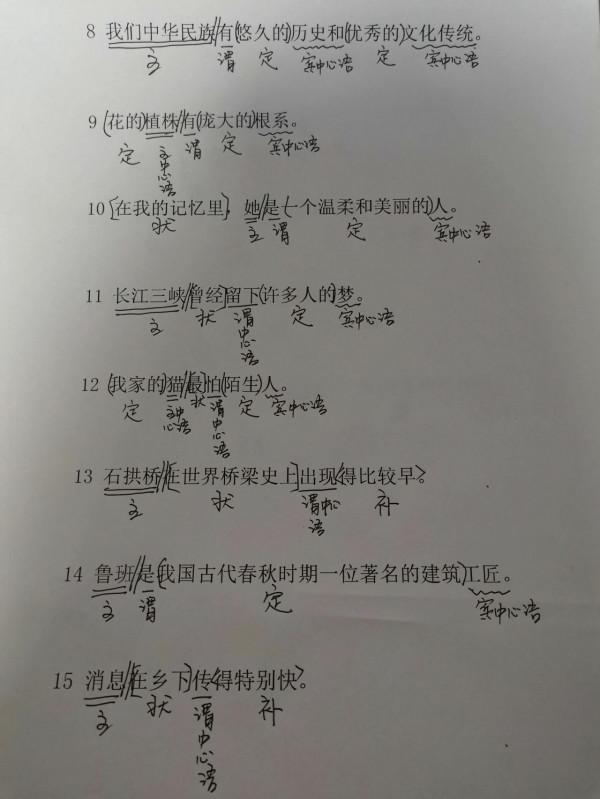 8 我们中华民族‖有(悠久的)历史和(优秀的)文化传统。
主 谓 定 宾中心语 定 宾中心语
9 (花的)植株‖有(庞大的)根系。
定 主中心语 谓 定 宾中心语
10 [在我的记忆里],她‖是(一个温柔和美丽的)人。
状 主 谓 定 宾中心语
11 长江三峡‖[曾经]留下(许多人的)梦。
主 状 谓中心语 定 宾中心语
12 (我家的)猫‖[最]怕(陌生)人。
定 主中心语 状 谓中心语 定 宾中心语
13 石拱桥‖[在世界桥梁史上]出现<得比较早>。
主 状 谓中心语 补
14 鲁班‖是(我国古代春秋时期一位著名的建筑)工匠。
主 谓 定 宾中心语
15 消息‖[在乡下]传<得特别快>。
主 状 谓中心语 补